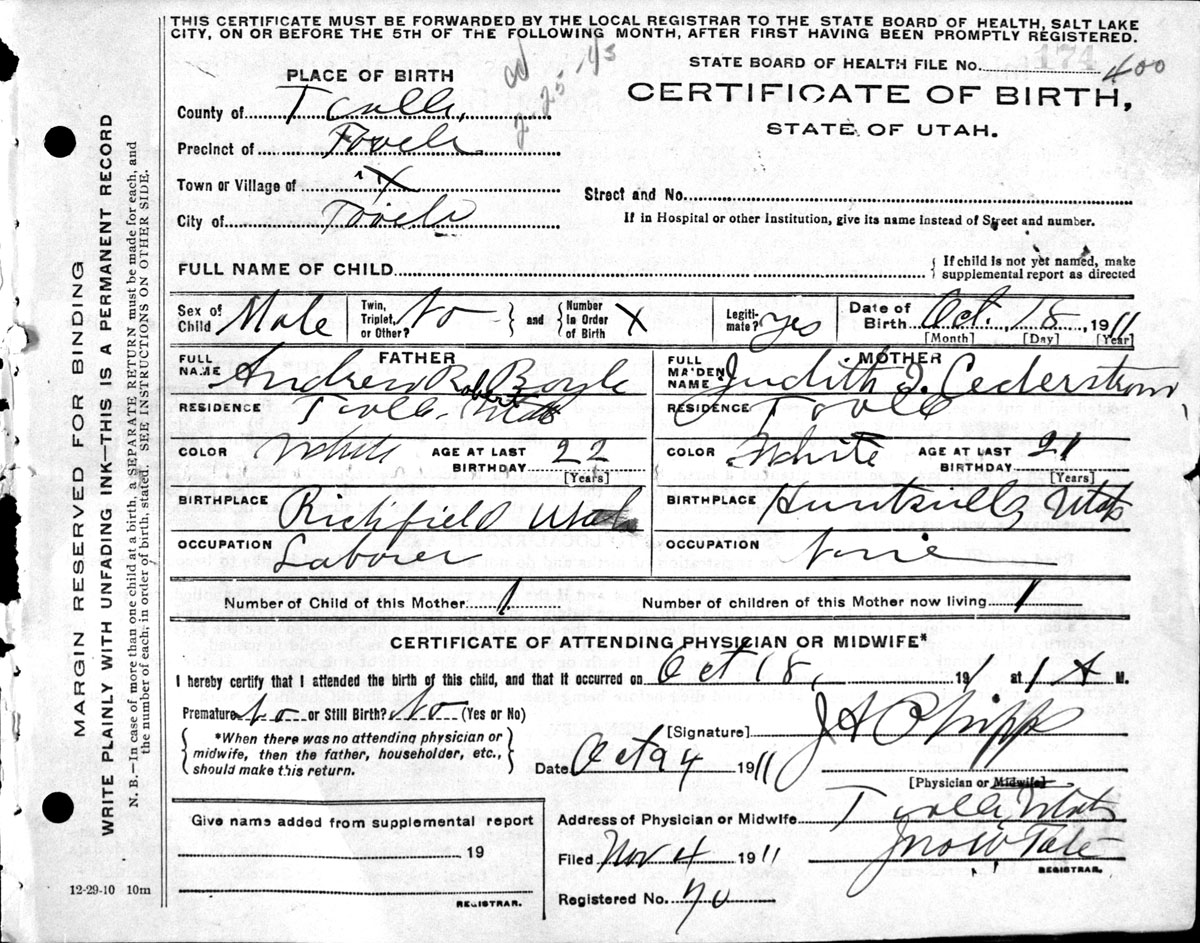 THIS CERTIFICATE MUST BE FORWARDED BY THE LOCAL REGISTRAR TO THE STATE BOARD OF HEALTH, SALT LAKE
CITY, ON OR BEFORE THE 5TH OF THE FOLLOWING MONTH, AFTER FIRST HAVING BEEN PROMPTLY REGISTERED.
STATE BOARD OF HEALTH FILE No. 174 400
CERTIFICATE OF BIRTH,
STATE OF UTAH.
PLACE OF BIRTH
County of Tooele,
Precinct of Tooele
Town or Village of X
City of Tooele
Street and No.
If in Hospital or other Institution, give its name instead of Street and number.
FULL NAME OF CHILD
{ If child is not yet named, make
supplemental report as directed
Sex of Child Male
Twin, Triplet, or Other? No } and { Number in Order of Birth X
Legiti-mate? yes
Date of Birth Oct. 18, 1911
[Month] [Day] [Year]
FATHER
FULL NAME Andrew Robert Boyle
RESIDENCE Tooele, Utah
COLOR White AGE AT LAST BIRTHDAY 22
[Years]
BIRTHPLACE Richfield Utah
OCCUPATION Laborer
MOTHER
FULL MAIDEN NAME Judith I. Cederstrom
RESIDENCE Tooele
COLOR White AGE AT LAST BIRTHDAY 21
[Years]
BIRTHPLACE Huntsville, Utah
OCCUPATION None
Number of Child of this Mother 1 Number of children of this Mother now living 1
CERTIFICATE OF ATTENDING PHYSICIAN OR MIDWIFE*
I hereby certify that I attended the birth of this child, and that it occurred on Oct 18, 1911 at 1 A M.
Premature No or Still Birth? No (Yes or No)
{ *When there was no attending physician or
midwife, then the father, householder, etc.,
should make this return. }
[Signature] J A Phipps
Date Oct 24 1911
[Physician or Midwife]
Address of Physician or Midwife Tooele, Utah
Filed Nov 4 1911 Jno W Tate
REGISTRAR.
Registered No. 70
Give name added from supplemental report
19
REGISTRAR.
12-29-10 10m
MARGIN RESERVED FOR BINDING
WRITE PLAINLY WITH UNFADING INK—THIS IS A PERMANENT RECORD
N. B.—In case of more than one child at a birth, a SEPARATE RETURN must be made for each, and
the number of each, in order of birth, stated. SEE INSTRUCTIONS ON OTHER SIDE.